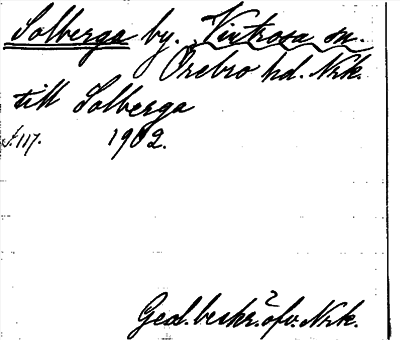 Solberga by. Vintrosa sn.
Örebro hd. Nrk.
till Solberga
s. 117. 1902.
Geol. beskr. öfv. Nrk.